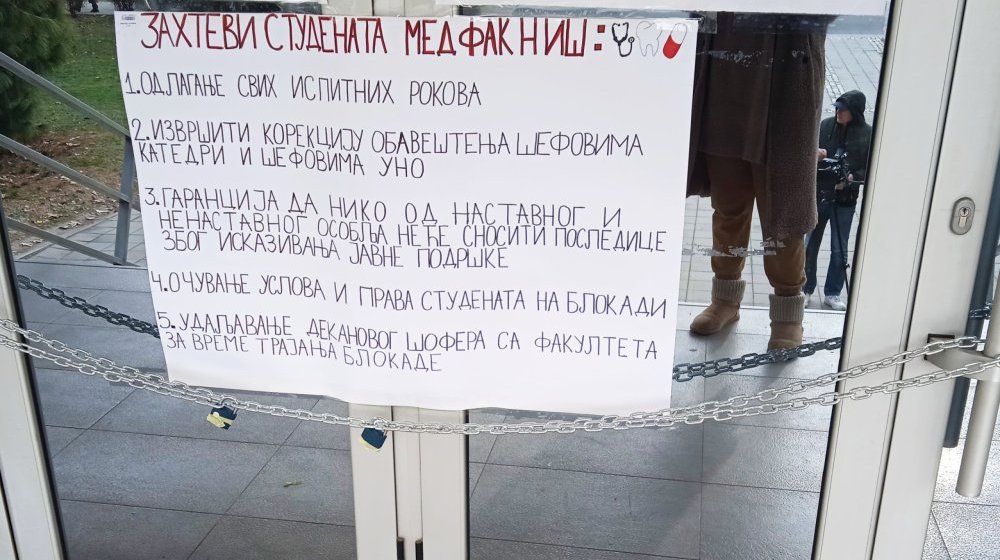 ЗАХТЕВИ СТУДЕНАТА МЕДФАК НИШ:
1. ОДЛАГАЊЕ СВИХ ИСПИТНИХ РОКОВА
2. ИЗВРШИТИ КОРЕКЦИЈУ ОБАВЕШТЕЊА ШЕФОВИМА
КАТЕДРИ И ШЕФОВИМА УНО
3. ГАРАНЦИЈА ДА НИКО ОД НАСТАВНОГ И
НЕНАСТАВНОГ ОСОБЉА НЕЋЕ СНОСИТИ ПОСЛЕДИЦЕ
ЗБОГ ИСКАЗИВАЊА ЈАВНЕ ПОДРШКЕ
4. ОЧУВАЊЕ УСЛОВА И ПРАВА СТУДЕНАТА НА БЛОКАДИ
5. УДАЉАВАЊЕ ДЕКАНОВОГ ШОФЕРА СА ФАКУЛТЕТА
ЗА ВРЕМЕ ТРАЈАЊА БЛОКАДЕ